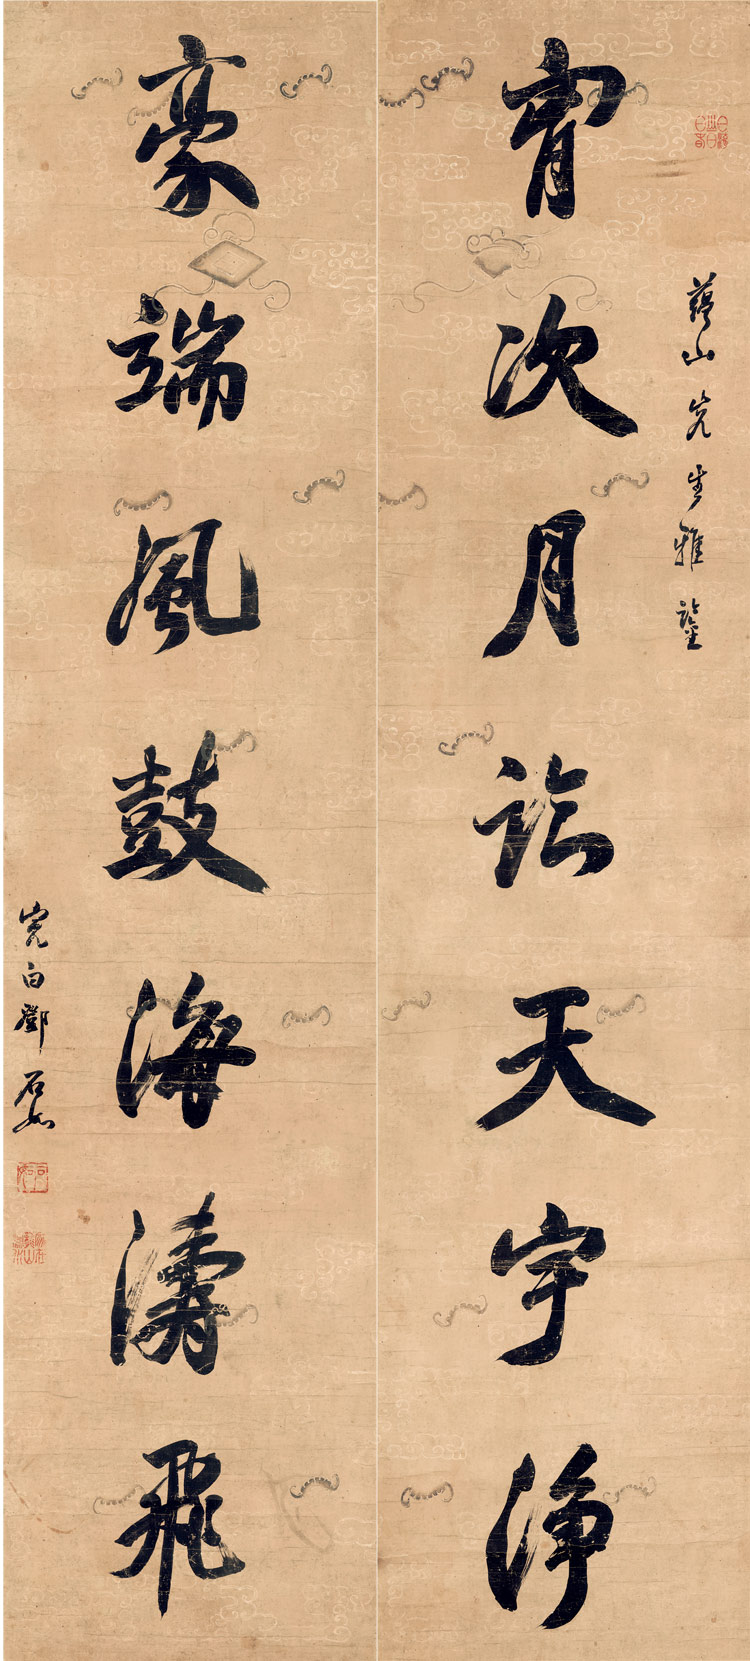 蘊山先生雅鑒
胷次月臨天宇淨
豪端風鼓海濤飛
完白鄧石如